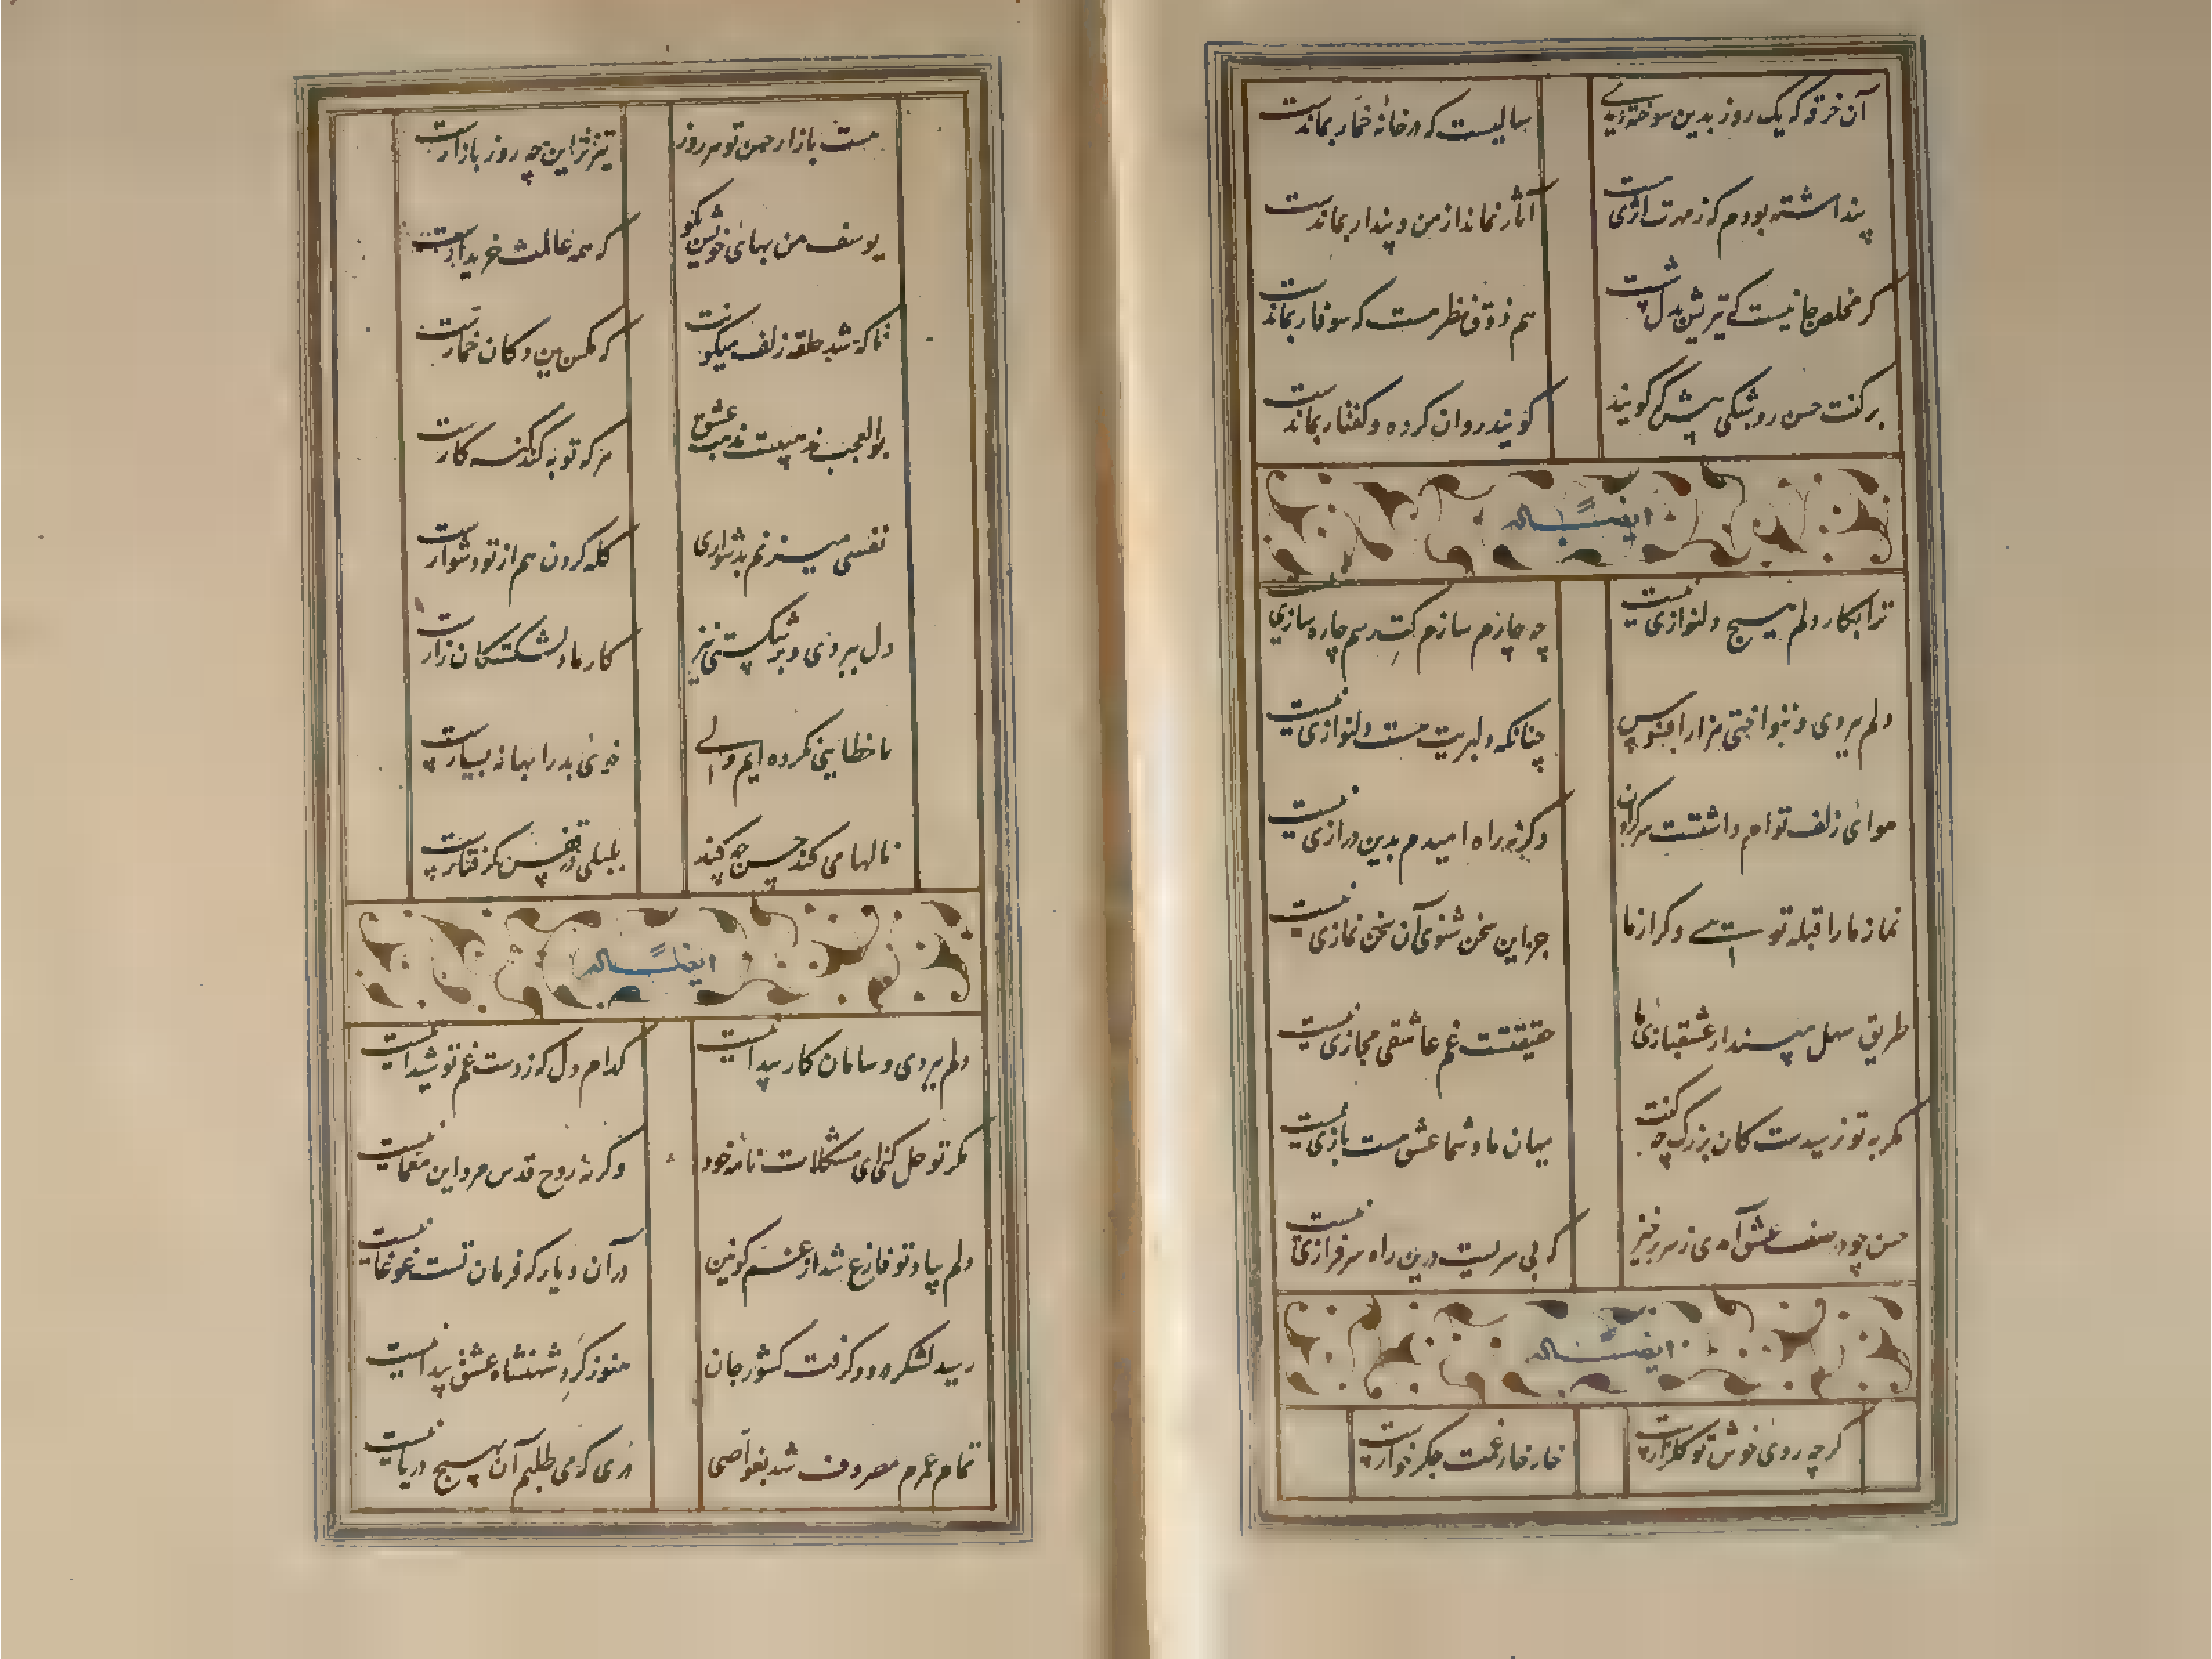 آن خرقه که یک روز بدین سوخته دیدی
سالیست که در خانهٔ خمار بماندست
پنداشته بودم که ز مهرت اثری هست
آثار نماند از من و پندار بماندست
گر مخلص جانیست که تیرش بدل
هم ذوق نظر هست که سوفار بماندست
برگفت حسن رو شبکی پیش که گویند
گویند روان کرده و گفتار بماندست
ایضاً له
ترا بکار دلم هیچ دلنوازی نیست
چه چاره سازم کت رسم چاره سازی نیست
دلم ببردی و ننواختی هزار افسوس
چنانکه دلبریت هست دلنوازی نیست
هوای زلف توام داشتست سرگردان
وگرنه راه امیدم بدین درازی نیست
نماز ما را قبله تو استی وگر از ما
جز این سخن شنوی آن سخن نمازی نیست
طریق سهل مپندار عشقبازی ما
حقیقتست غم عاشقی مجازی نیست
مگر به تو نرسیدست کان بزرگ چه گفت
میان ما و شما عشق هست بازی نیست
حسن چو در صف عشق آمدی ز سر برخیز
که بی سریست درین راه سرفرازی نیست
ایضاً له
گرچه روی خوش تو گلزارست
خار خار غمت جگرخوارست
هست بازار حسن تو هر روز
تیزتر این چه روز بازارست
یوسف من بهای خویش مگو
که همه عالمت خریدارست
تا که شد حلقه زلف میگونت
که مکن بین دکان خمارست
بوالعجب مذهبیست مذهب عشق
هر که توبه کند گنه کارست
نفسی میزنم بدشواری
گله کردن هم از تو دشوارست
دل ببردی و بر شکستی نیز
کار ما دلشکستگان زارست
ما خطایی نکرده ایم ولی
خوی بد را بهانه بسیارست
نالها می کند حسن چه کند
بلبلی در قفس گرفتارست
ایضاً له
دلم ببردی و سامان کار پیدا نیست
کدام دل که ز دست غم تو شیدا نیست
مگر تو حل کنی ای مشکلات نامه خود
وگرنه روح قدس مرد این معما نیست
دلم بیاد تو فارغ شد از غم کونین
در آن دیار که فرمان تست غوغا نیست
رسید لشکر درد و گرفت کشور جان
هنوز گرد شهنشاه عشق پیدا نیست
تمام عمرم مصروف شد بغواصی
دری که می طلبم آن بهیچ دریا نیست